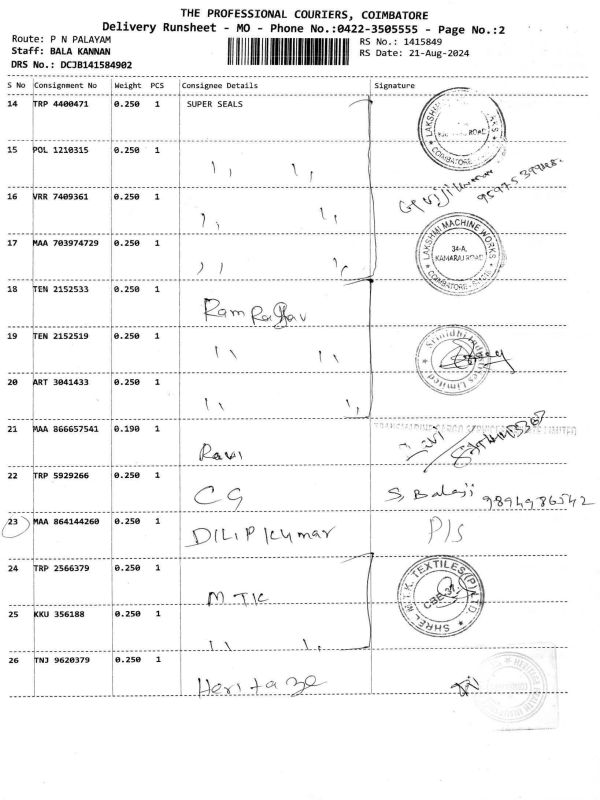 THE PROFESSIONAL COURIERS, COIMBATORE
Delivery Runsheet - MO - Phone No.:0422-3505555 - Page No.:2
Route: P N PALAYAM
RS No.: 1415849
Staff: BALA KANNAN
RS Date: 21-Aug-2024
DRS No.: DCJB141584902
S No Consignment No Weight PCS Consignee Details Signature
14 TRP 4400471 0.250 1 SUPER SEALS
LAKSHMI WORKS ROAD COIMBATORE
15 POL 1210315 0.250 1 " "
16 VRR 7409361 0.250 1 " "
17 MAA 703974729 0.250 1 " "
LAKSHMI MACHINE WORKS
34-A,
KAMARAJ ROAD
COIMBATORE
18 TEN 2152533 0.250 1 Ram Raghav
19 TEN 2152519 0.250 1 " "
Srinidhi Industries Limited
20 ART 3041433 0.250 1 " "
21 MAA 866657541 0.190 1 Ravi
LIMITED
22 TRP 5929266 0.250 1 CG S, Balaji 9894986542
23 MAA 864144260 0.250 1 DILIP Kumar P/S
24 TRP 2566379 0.250 1 MTK
SHREE M.T.K. TEXTILES (P) LTD.
25 KKU 356188 0.250 1 " "
26 TNJ 9620379 0.250 1 Heritage